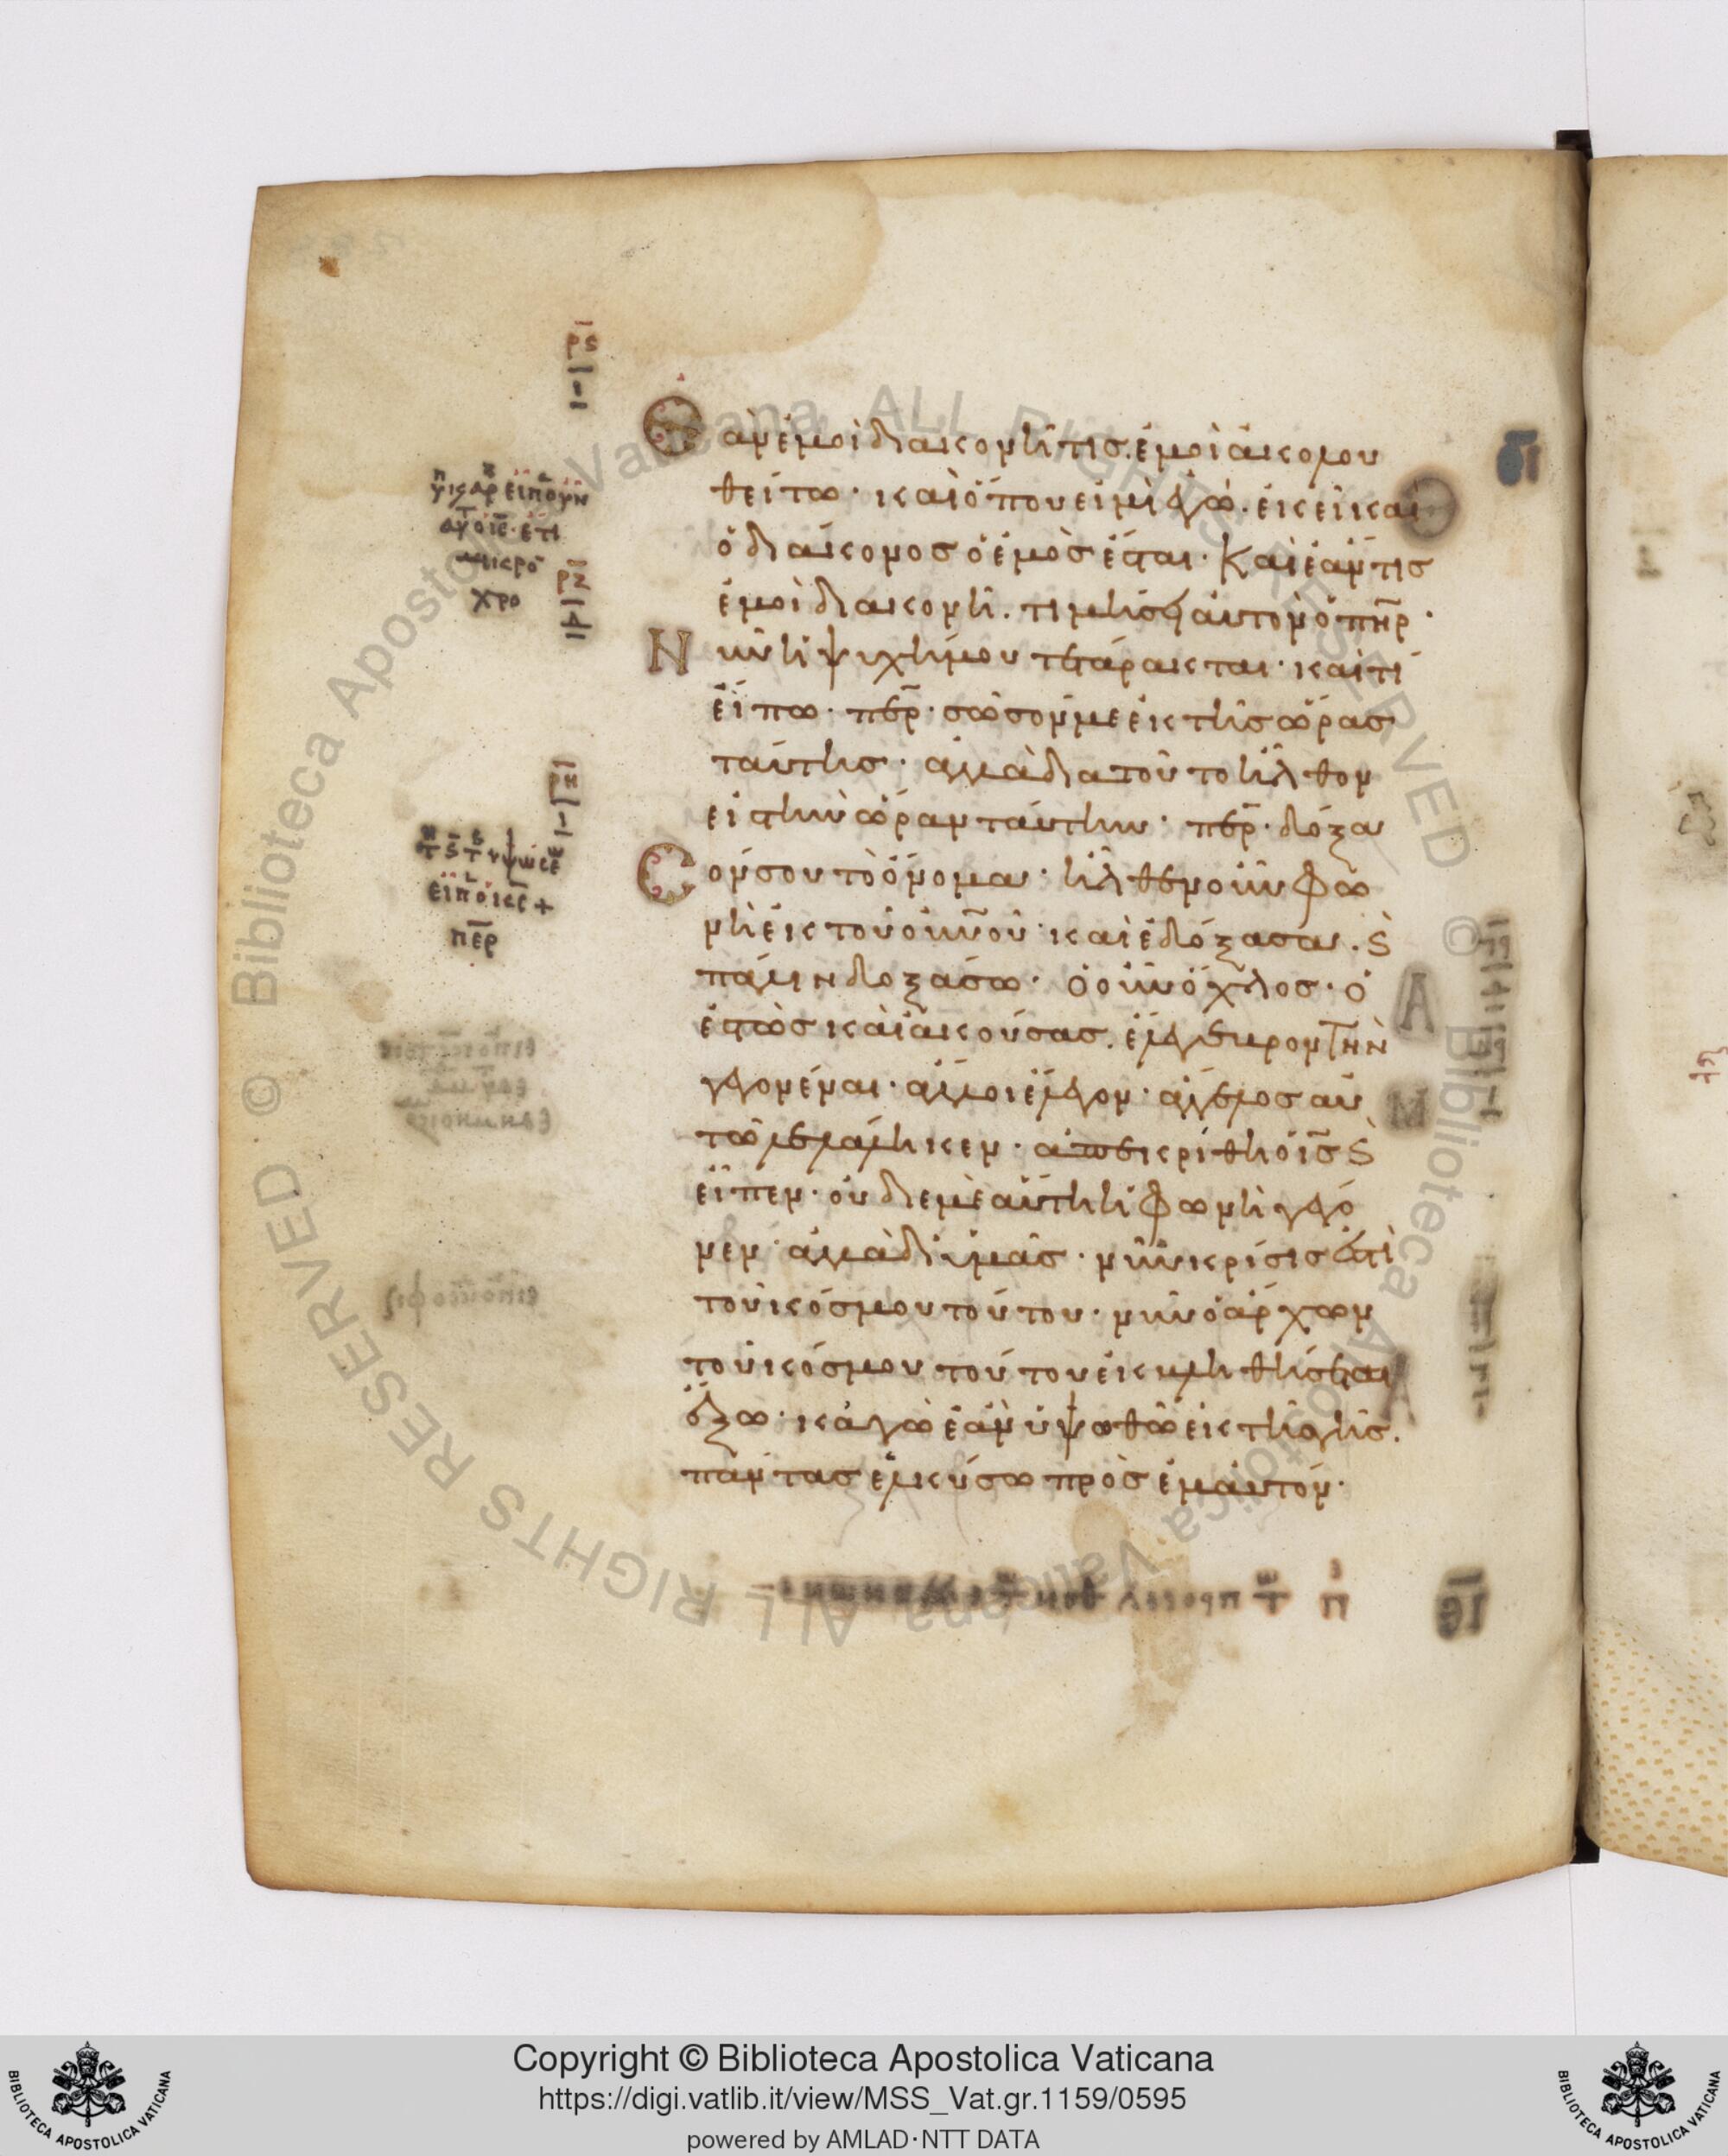 Ἐὰν ἐμοὶ διακονῆ τις. ἐμοὶ ἀκολου
θείτω· καὶ ὅπου εἰμὶ ἐγὼ. ἐκεῖ καὶ
ὁ διάκονος ὁ ἐμὸς ἔσται· Καὶ ἐάν τις
ἐμοὶ διακονῆ. τιμήσει αὐτὸν ὁ πη̅ρ·
Νῦν ἡ ψυχή μου τετάρακται· καὶ τί
εἴπω· πε̅ρ· σῶσόν με ἐκ τῆς ὥρας
ταύτης· ἀλλὰ διατοῦτο ἦλθον
εἰς τὴν ὥραν ταύτην· πε̅ρ· δόξα
σόν σου τὸ ὄνομα· ἦλθεν οὖν φω
νὴ ἐκ τοῦ οὐν̅οῦ· καὶ ἐδόξασα. ϛ̀
πάλιν δοξάσω· ὁ οὖν ὄχλος· ὁ
ἑστὼς καὶ ἀκούσας. ἔλεγεν βροντὴν
γεγονέναι· ἄλλοι ἔλεγον· ἄγγελος αὐ
τῶ λελάληκεν· ἀπεκρίθη ὁ ι̅ς ϛ̀
εἶπεν· οὐ δι' ἐμὲ αὕτη ἡ φωνὴ γέγο
νεν· ἀλλὰ δι' ὑμᾶς· νῦν κρίσις ἐστὶ
τοῦ κόσμου τούτου· νῦν ὁ ἄρχων
τοῦ κόσμου τούτου ἐκβληθήσεται
ἔξω· κἀγὼ ἐὰν ὑψωθῶ ἐκ τῆς γῆς.
πάντας ἑλκύσω πρὸς ἐμαυτόν·
Copyright © Biblioteca Apostolica Vaticana
https://digi.vatlib.it/view/MSS_Vat.gr.1159/0595
powered by AMLAD·NTT DATA
BIBLIOTECA APOSTOLICA VATICANA
BIBLIOTECA APOSTOLICA VATICANA
© Biblioteca Apostolica Vaticana ALL RIGHTS RESERVED
© Biblioteca Apostolica Vaticana ALL RIGHTS RESERVED